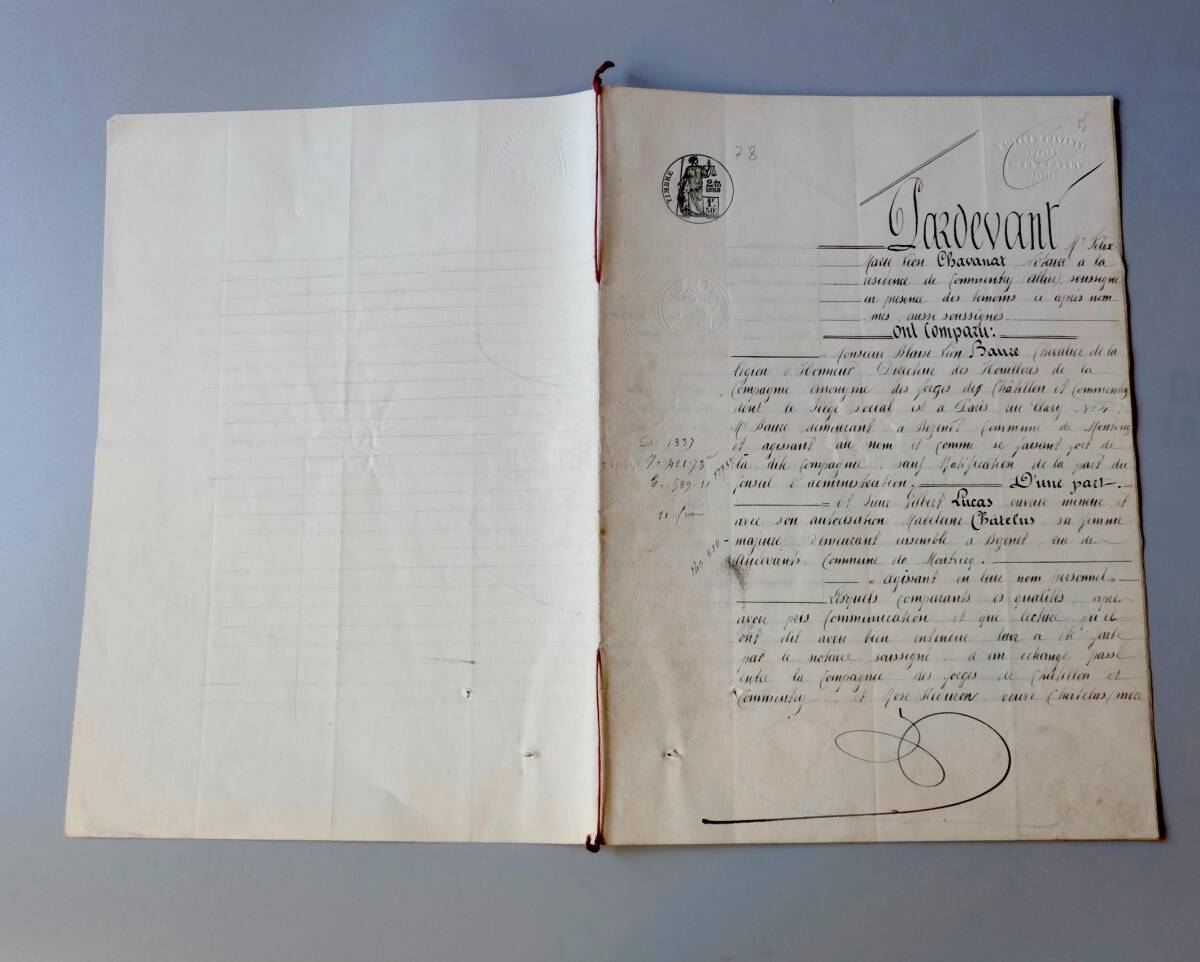 78
TIMBRE
2/10
EN SUS
1F
50c
FELIX LEON CHAVANAT
NOTAIRE
A COMMENTRY
Pardevant Me Félix
Marie Léon Chavanat Notaire à la
résidence de Commentry (Allier) soussigné
en présence des temoins ci après nom-
més, aussi soussignés.
ont comparu:
Monsieur Blaise Léon Baure Chevalier de la
légion d'Honneur, Directeur des Houillères de la
Compagnie anonyme des forges de Châtillon et Commentry
dont le siège social est à Paris rue No
Mr Baure demeurant à Bézenet Commune de Montvicq
et agissant au nom et comme se faisant fort de
la dite Compagnie, sauf Ratification de la part du
Conseil d'administration. D'une part.
Et Sieur Gilbert Lucas ouvrier mineur et
avec son autorisation Madeleine Châtelus sa femme
majeure, demeurant ensemble à Bézenet,
Commune de Montvicq.
"agissant en leur nom personnel"
Lesquels Comparants ès qualités, après
avoir pris Communication et que lecture qu'ils
ont dit avoir bien entendue, leur a été faite
par le notaire soussigné d'un échange passé
entre la Compagnie des forges de Châtillon et
Commentry, et Rose veuve Châtelus, mère
D. 1337